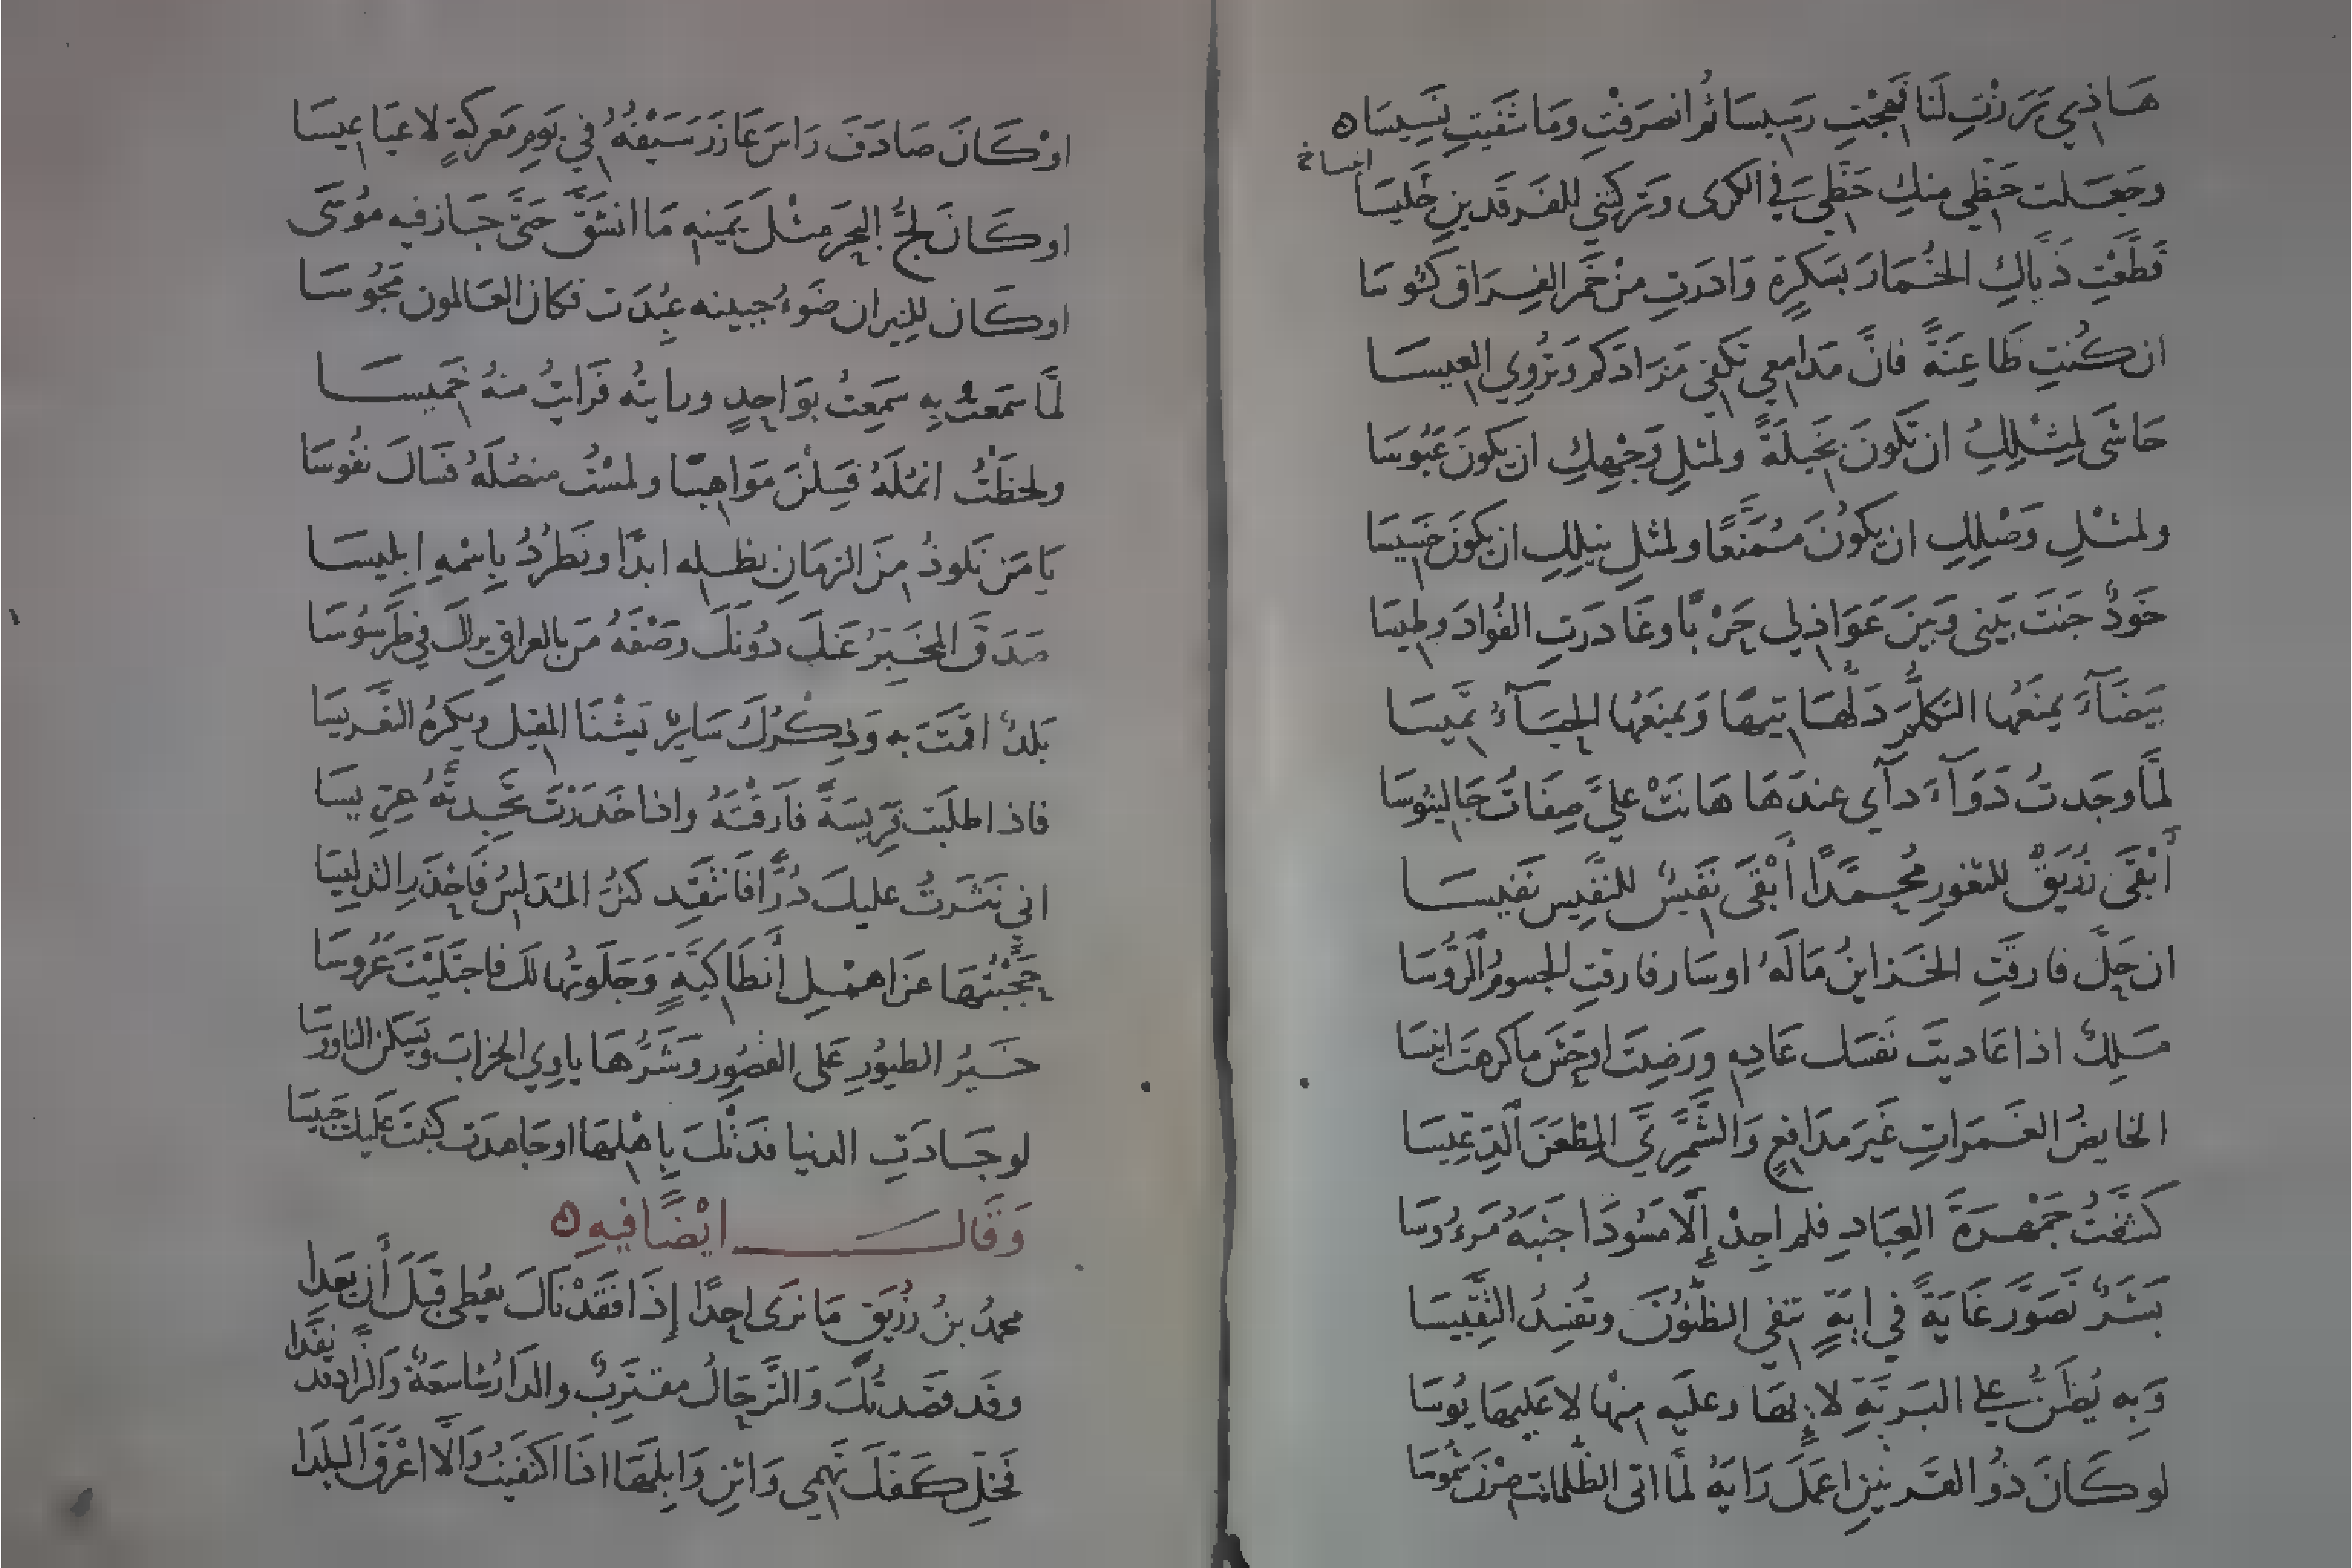 هَاذِي بَرَزْتِ لَنَا فَهِجْتِ رَسِيسَا ثُمَّ انصَرَفْتِ وَمَا شَفَيتِ نَسِيسَا ه
وجَعَلت حَظِي منكِ حَظِّيَ في الكرَى وَتركتني للفَرقَدينِ جَليسَا
قَطَّعْتِ ذَيَّاكِ الخُمَارَ بسَكرَةٍ وَادَرتِ مِنْ خَمر الفِرَاق كئُوسَا
ان كُنتِ ظَاعِنَةً فانَّ مَدامعي تكفي مَزَادَكم وَتُروِي العِيسَا
حَاشَى لمِثْلِكِ ان تَكونَ بَخِيلَةً ولمثلِ وَجْهِكِ ان يكونَ عَبُوسَا
ولمثْلِ وَصْلِكِ ان يكُونَ مُمَنَّعًا ولمثلِ نيلِكِ ان يكونَ خَسيسَا
خَوْدٌ جَنَت بَيني وَبينَ عَوَاذلي حَرْبًا وغَادرَتِ الفُوادَ وطيسَا
بَيضَآءُ يمنَعُها التكلُّمَ دَلُّهَا تيهًا وَيمنَعُها الحَيَآءُ تميسَا
لمَّا وجَدتُ دَوَآءَ دآي عندَهَا هَانَتْ عليَّ صِفَاتُ جَالينُوسَا
أَبْقَى زُرَيقٌ للثغورِ مُحمَّدًا أَبْقَى نَفِيسٌ للنَّفِيس نَفيسَا
ان حَلَّ فارقَتِ الخَزاينُ مَالَهُ اوسَار فارقتِ الجسومُ الرُّوسَا
مَلِكٌ اذا عَاديتَ نَفسَك عَادِهِ ورَضِيتَ اوحَشَ ماكرهتَ انيسَا
الخايضُ الغَمَراتِ غَيرَ مدَافعٍ وَالشَّمَّرِيَّ المِطْعَنَ الدِّعِّيسَا
كَشَّفتُ جَمْهَرَةَ العِبَادِ فلم اجِدْ إِلّا مَسُودَا جَنبَهُ مَرءُوسَا
بَشَرٌ تَصَوَّرَ غَايَةً في ايَةٍ تنفي الظُّنُونَ وتُفسِدُ التَّقيِيسَا
وَبِه يُضَنُّ على البَريَّةِ لا بِهَا وعلَيهِ منها لا عَليهَا يُوسَا
لوكَانَ ذُو القَرنينِ اعمَلَ رَايَهُ لمَّا اتى الظُّلمات صِرْنَ شُمُوسَا
اوْكَانَ صَادَفَ رَاسَ عَازَرَ سَيْفُهُ في يَومِ مَعركَةٍ لاعيَا عيسَا
اوكَانَ لُجُّ البحرِ مثْلَ يَمينِهِ مَا انشَقَّ حَتَّى جَازَ فيه مُوسَى
اوكَان للنيران ضَوءُ جبينه عُبِدَت فكان العَالمون مَجُوسَا
لمَّا سَمعتُ بِهِ سَمِعتُ بوَاحِدٍ ورايتُه فَرَايتُ منهُ خَميسَا
ولحَظْتُ انمُلَهُ فَسِلْنَ مَواهبًا ولمسْتُ منصُلَهُ فسَالَ نفُوسَا
يَا مَن نَلُوذُ مِنَ الزمَانِ بظلِه ابدًا ونَطرُدُ بِاسْمِهِ ابليسَا
صَدَقَ المخَبِّرُ عَنكَ دُونَكَ وَصْفَهُ مَن بالعراقِ يراكَ في طَرسُوسَا
بَلدٌ اقمتَ به وَذِكرُكَ سَايرٌ يَشْنَا المقيل ويكرهُ التَّعريسَا
فاذا طلَبت فَرِيسَةً فارَقْتَهُ واذا خَدَرْتَ تَخِدتَهُ عرّيسَا
اني نَثَرتُ عليكَ دُرًّا فَانتَقِد كثُرَ المُدَلِّسُ فَاحْذَرِ التدليسَا
حَجَّبْتُهَا عَن اهلِ أَنطَاكيَّةٍ وَجَلَوتُها لكَ فاجتَلَيْتَ عَرُوسَا
خَيرُ الطيُورِ عَلى القصُورِ وَشَرُّهَا ياوِي الخرابَ وَيَسكن الناوُوسَا
لوجَادَتِ الدنيا فَدَتْكَ بِاهْلِهَا اوجَاهدَت كتبَتْ عَليك حَبيسَا
وَقَالَ ايْضًا فيهِ ه
محمدُ بنُ زُرَيقٍ مَا نرَى احدًا إِذَا فَقَدْنَاكَ يعُطي قَبلَ أَن يَعِدا
وقَد قصَدتُكَ وَالتَّرحَالُ مقتَرِبٌ والدَارُ شاسعَةٌ وَالزَّادُ قد نفِدا
فَخَلِّ كَفَّكَ تَهْمي وَاثنِ وَابلَهَا اذَا اكتفَيتُ وَالَّا اغرَقَ البلَدا